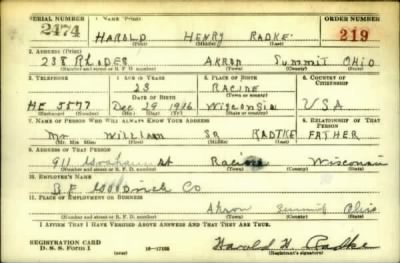 SERIAL NUMBER 1. NAME (Print) ORDER NUMBER
2474 HAROLD HENRY RADKE 219
(First) (Middle) (Last)
2. ADDRESS (Print)
238 RHODES AKRON SUMMIT OHIO
(Number and street or R. F. D. number) (Town) (County) (State)
3. TELEPHONE 4. AGE IN YEARS 5. PLACE OF BIRTH 6. COUNTRY OF CITIZENSHIP
23 RACINE
DATE OF BIRTH (Town or county)
HE 5877 Dec 29 1916 Wisconsin USA
(Mo.) (Day) (Yr.) (State or country)
7. NAME OF PERSON WHO WILL ALWAYS KNOW YOUR ADDRESS 8. RELATIONSHIP OF THAT PERSON
Mr William SR RADTKE FATHER
(Mr., Mrs., Miss) (First) (Middle) (Last)
9. ADDRESS OF THAT PERSON
911 St Racine Wisconsin
(Number and street or R. F. D. number) (Town) (County) (State)
10. EMPLOYER'S NAME
B F Goodrich Co
11. PLACE OF EMPLOYMENT OR BUSINESS
Akron Summit Ohio
(Number and street or R. F. D. number) (Town) (County) (State)
I AFFIRM THAT I HAVE VERIFIED ABOVE ANSWERS AND THAT THEY ARE TRUE.
REGISTRATION CARD
D. S. S. Form 1 16-17105 Harold H. Radke
(Registrant's signature)